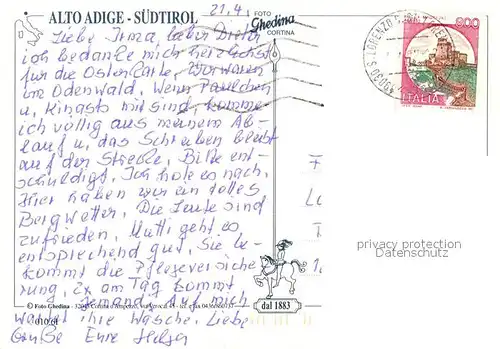 ALTO ADIGE - SÜDTIROL
21.4.
FOTO
Ghedina
CORTINA
Liebe Irma, lieber
ich bedanke mich herzlichst
für die Osterkarte. Wir waren
im Odenwald. Wenn Paulchen
u. mit sind, komme
ich völlig aus meinem Ab-
lauf u. das Schreiben bleibt
auf der Strecke. Bitte ent-
schuldigt. Ich hole es nach.
Hier haben wir ein tolles
Bergwetter. Die Leute sind
zufrieden. Mutti geht es
entsprechend gut. Sie be-
kommt die Pflegeversiche
rung, 2x am Tag kommt
jemand. Auf mich
wartet ihre Wäsche. Liebe
Grüße Eure
© Foto Ghedina - Cortina
dal 1883
800
ITALIA
S. LORENZO
privacy protection
Datenschutz